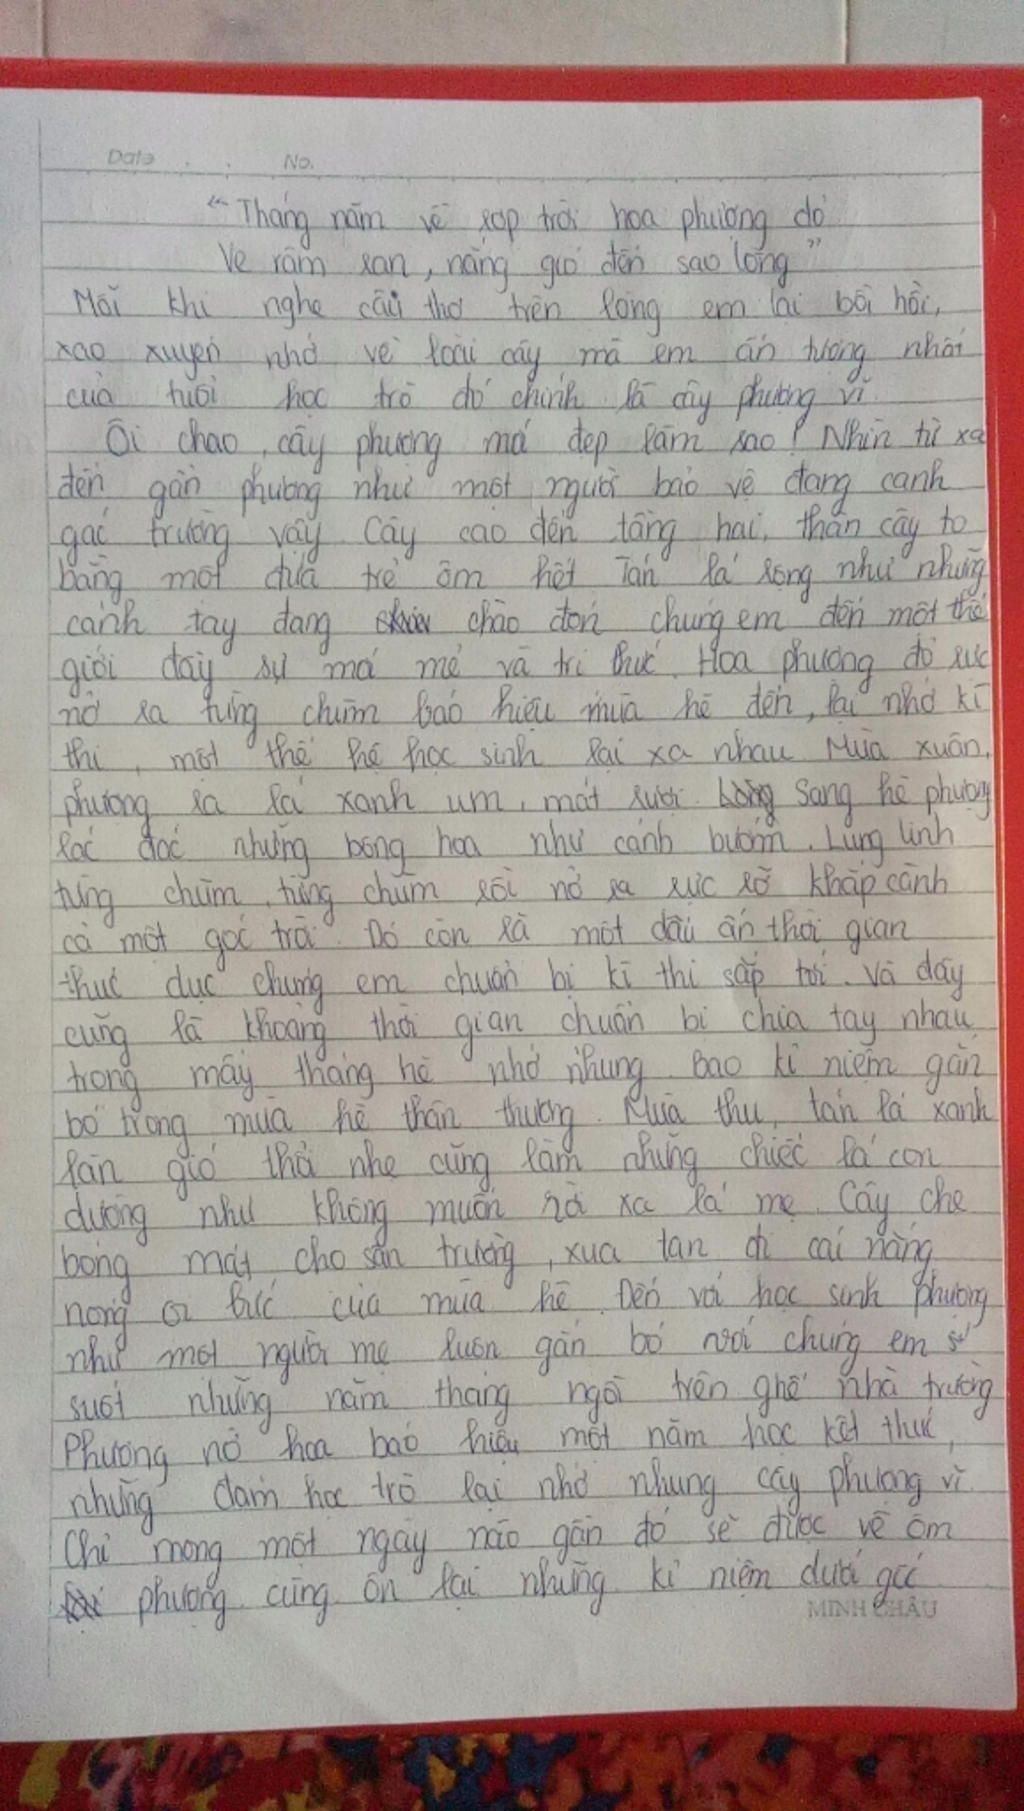 Date No.
"Tháng năm về rợp trời hoa phượng đỏ
Ve râm ran, nắng gió đến sao lòng"
Mỗi khi nghe câu thơ trên lòng em lại bồi hồi,
xao xuyến nhớ về loài cây mà em ấn tượng nhất
của tuổi học trò đó chính là cây phượng vĩ.
Ôi chao, cây phượng mới đẹp làm sao! Nhìn từ xa
đến gần phượng như một người bảo vệ đang canh
gác trường vậy. Cây cao đến tầng hai, thân cây to
bằng một đứa trẻ ôm hết. Tán lá rộng như những
cánh tay đang chào đón chúng em đến một thế
giới đầy sự mới mẻ và tri thức. Hoa phượng đỏ rực
nở ra từng chùm báo hiệu mùa hè đến, lại nhớ kì
thi, một thế hệ học sinh lại xa nhau. Mùa xuân,
phượng ra lá xanh um, mát rượi. Sang hè phượng
lác đác những bông hoa như cánh bướm. Lung linh
từng chùm, từng chùm rồi nở ra rực rỡ khắp cành
cả một góc trời. Đó còn là một dấu ấn thời gian
thúc dục chúng em chuẩn bị kì thi sắp tới. Và đây
cũng là khoảng thời gian chuẩn bị chia tay nhau
trong mấy tháng hè nhớ nhung. Bao kỉ niệm gắn
bó trong mùa hè thân thương. Mùa thu, tán lá xanh
lần gió thổi nhẹ cũng làm những chiếc lá con
dường như không muốn rời xa lá mẹ. Cây che
bóng mát cho sân trường, xua tan đi cái nắng
nóng oi bức của mùa hè. Đến với học sinh phượng
như một người mẹ luôn gắn bó với chúng em
suốt những năm tháng ngồi trên ghế nhà trường
Phượng nở hoa báo hiệu một năm học kết thúc,
những đám học trò lại nhớ nhung cây phượng vĩ.
Chỉ mong một ngày nào gần đó sẽ được về ôm
phượng cùng ôn lại những kỉ niệm dưới gốc
MINH CHÂU